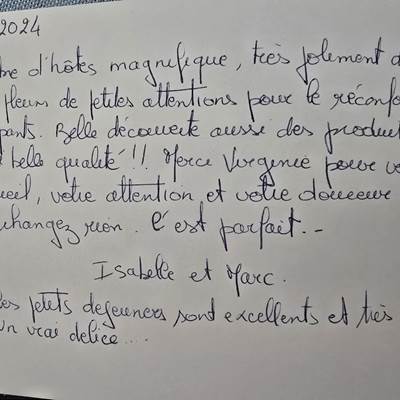 2024
d'hôtes magnifique, très joliment
de petites attentions pour le
Belle découverte aussi des
belle qualité !!! Merci Virginie pour
votre attention et votre douceur
changez rien. C'est parfait..-
Isabelle et Marc.
petits dejeuners sont excellents et très
un vrai delice....